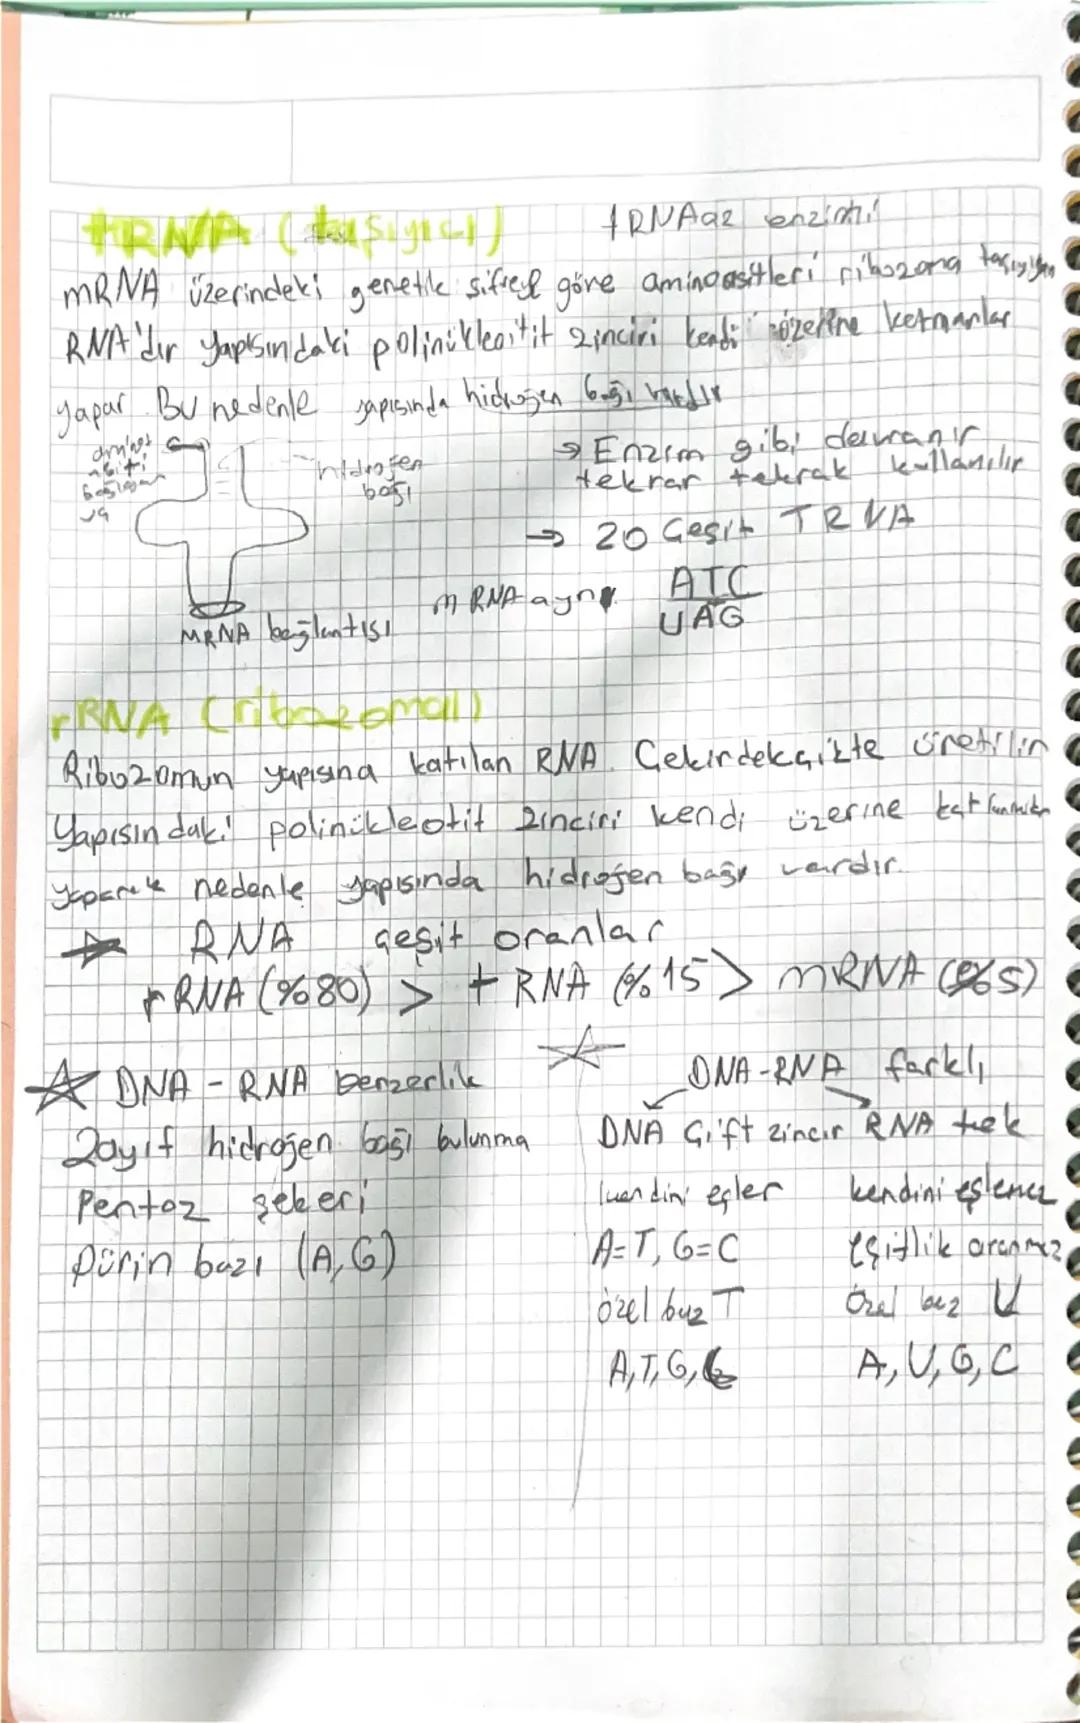 tRNA (taşıyıcı)
tRNAaz enzimi
mRNA üzerindeki genetik şifreye göre aminoasitleri ribozoma taşıyan
RNA'dır yapısındaki polinükleotit zinciri kendi üzerine katmanlar
yapar. Bu nedenle yapısında hidrojen bağı vardır
hidrojen
bağı
→ Enzim gibi davranır
tekrar tekrak kullanılır
→ 20 Çeşit TRNA
mRNA aynı
ATC
UAG
MRNA bağlantısı
rRNA (ribozomal)
Ribozomun yapısına katılan RNA. Çekirdekçikte üretilir
Yapısındaki polinükleotit zinciri kendi üzerine
nedenle yapısında hidrojen bağı vardır.
RNA çeşit oranlar
rRNA (%80) > tRNA (%15 > mRNA (%5)
DNA - RNA benzerlik
Zayıf hidrojen bağı bulunma
Pentoz şekeri
pürin bazı (A,G)
DNA-RNA farklı
DNA Çift zincir RNA tek
kendini eşler kendini eşlemez
A=T, G=C eşitlik aranmaz
özel baz T Özel baz U
A,T,G,C A,U,G,C